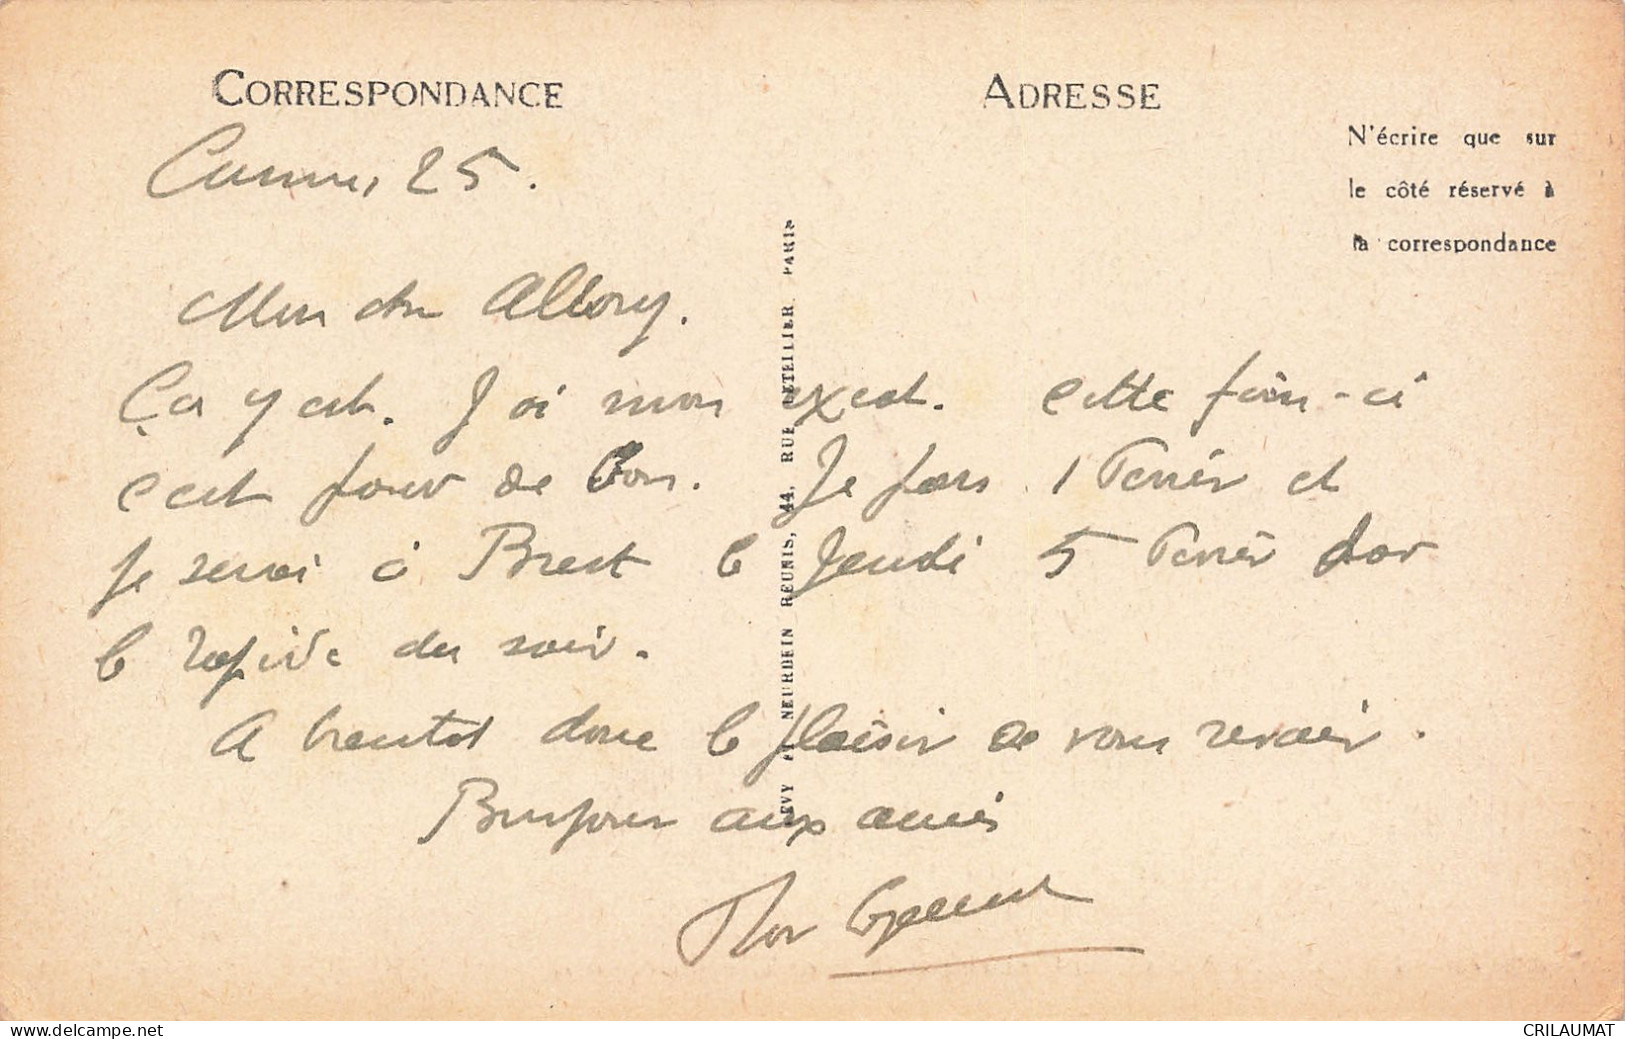 CORRESPONDANCE
ADRESSE
N'écrire que sur
le côté réservé à
la correspondance
Cannes, 25.
Mon cher Allory.
Ça y est. J'ai mon exeat. Cette fois-ci
c'est pour de bon. Je pars 1 Février et
je serai à Brest le Jeudi 5 Février par
le rapide du soir.
A bientot donc le plaisir de vous revoir.
Bonjour aux amis
LEVY ET NEURDEIN REUNIS, 44, RUE LETELLIER, PARIS
www.delcampe.net
CRILAUMAT